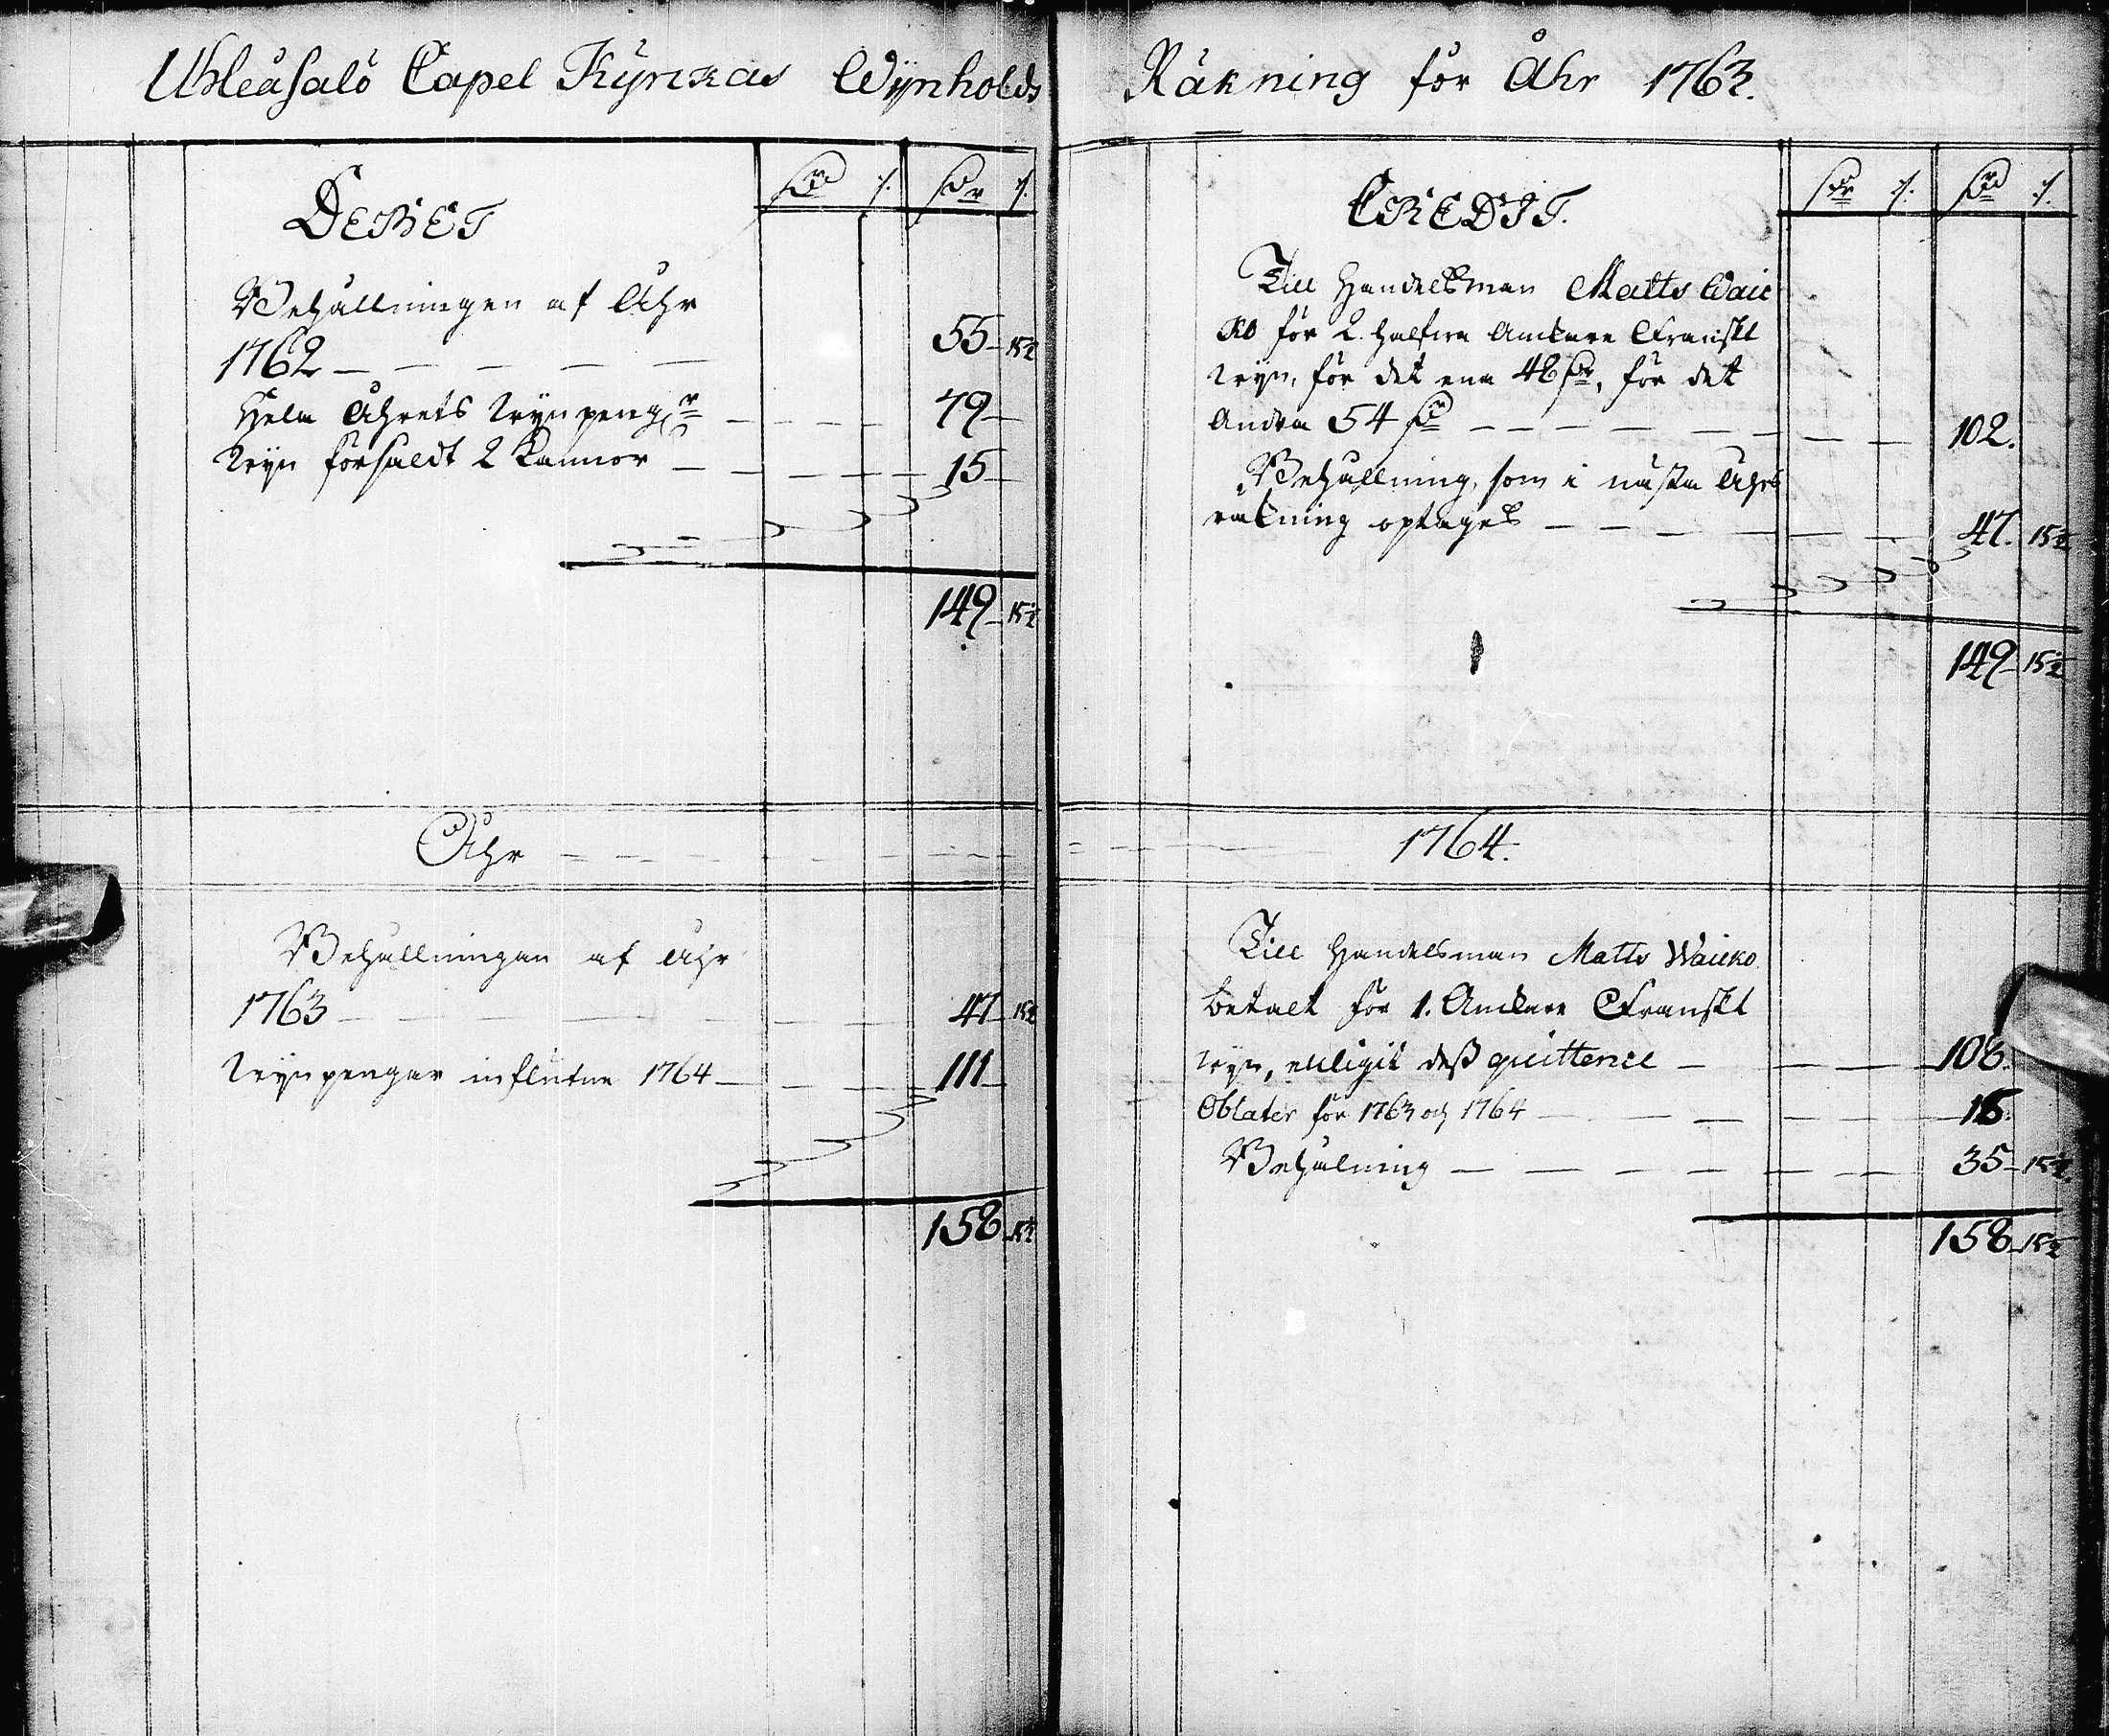 Uhleåsalo Capel Kyrckas Wÿnholds Räkning för Åhr 1763.
DEBET
Behållningen af Åhr
1762 — — — — — 55 — 15½
Hela Åhrets Wynpengr — — — 79 —
Wyn försåldt 2 Kannor — — — 15 —
149 — 15½
CREDIT.
Till Handelsman Matts Waic
ko för 2. halfwa Anckare Franskt
wyn, för det ena 48 Dr, för det
Andra 54 Dr — — — — — 102.
Behållning, som i nästa Åhrs
räkning optages — — — — 47. 15½
149 — 15½
Åhr — — — — — 1764.
Behållningen af Åhr
1763 — — — — — 47 — 15½
Wynpengar influtne 1764 — — — 111 —
158 — 15½
Till Handelsman Matts Waicko
betalt för 1. Anckare Franskt
wyn, enligit dess quittence — — — 108.
Oblater för 1763 och 1764 — — — 15.
Behålning — — — — — 35 — 15½.
158 — 15½